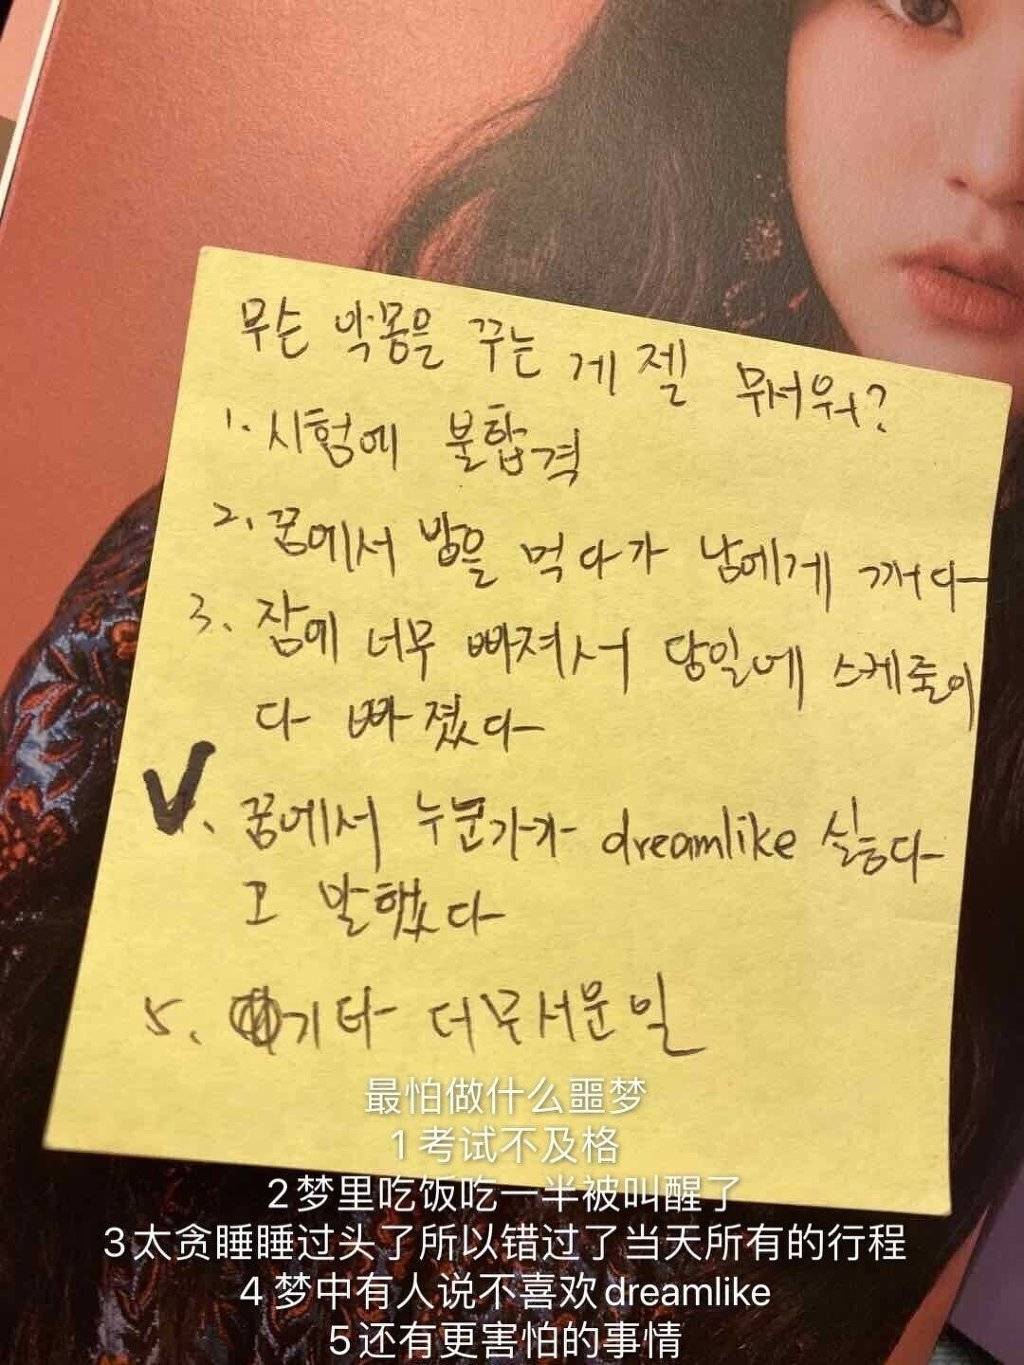 무슨 악몽을 꾸는 게 젤 무서워?
1. 시험에 불합격
2. 꿈에서 밥을 먹다가 남에게 깨다
3. 잠에 너무 빠져서 당일에 스케줄이
다 빠졌다
V4. 꿈에서 누군가가 dreamlike 싫다
고 말했다
5. 기타 더 무서운 일
最怕做什么噩梦
1考试不及格
2梦里吃饭吃一半被叫醒了
3太贪睡睡过头了所以错过了当天所有的行程
4梦中有人说不喜欢dreamlike
5还有更害怕的事情